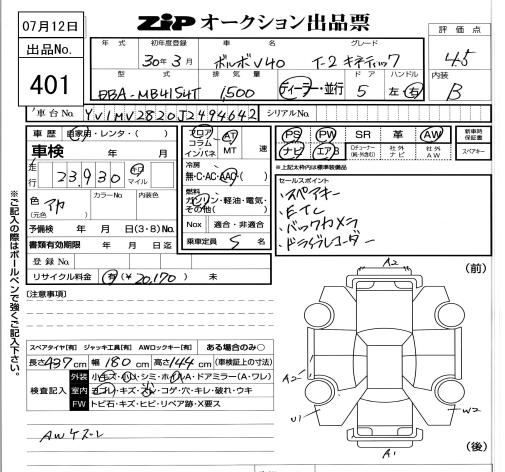 07月12日
ZIP オークション出品票
出品No.
401
年式 初年度登録 車名 グレード
30年3月 ボルボV40 T-2 キネティック
評価点
4.5
型式 排気量 ドア ハンドル
DBA-MB4154T 1,500 ディーラー・並行 5 左・右
内装
B
車台No. YV1MV2820J2494642 シリアルNo.
車歴 自家用・レンタ・( )
車検 年 月
走行 23,930 キロ マイル
色 (元色) アカ カラーNo. 内装色
予備検 年 月 日(3・8)No.
書類有効期限 年 月 日迄
登録No.
リサイクル料金 有(¥20,170) 未
フロア コラム インパネ AT MT 速
冷房
無・C・AC・AAC
燃料
ガソリン・軽油・電気・その他( )
Nox 適合・非適合
乗車定員 5 名
PS PW SR 革 AW
ナビ エアB Dチューナー(純・外含む) 社外ナビ 社外AW
新車時保証書
スペアキー
※上記太枠内は装備義務
セールスポイント
・スペアキー
・ETC
・バックカメラ
・ドライブレコーダー
※ご記入の際はボールペンで強くご記入下さい。
[注意事項]
スペアタイヤ[有] ジャッキ工具[有] AWロックキー[有] ある場合のみ○
長さ437cm 幅180cm 高さ144cm (車検証上の寸法)
検査記入
外装 小キズ・小凹・シミ・ホイルA・ドアミラー(A・ワレ)
室内 ヨゴレ・キズ・スレ・コゲ・穴・キレ・破れ・ウキ
FW トビ石・キズ・ヒビ・リペア跡・X要ス
AWケズレ
(前)
A2
A2
U1
W2
A1
(後)